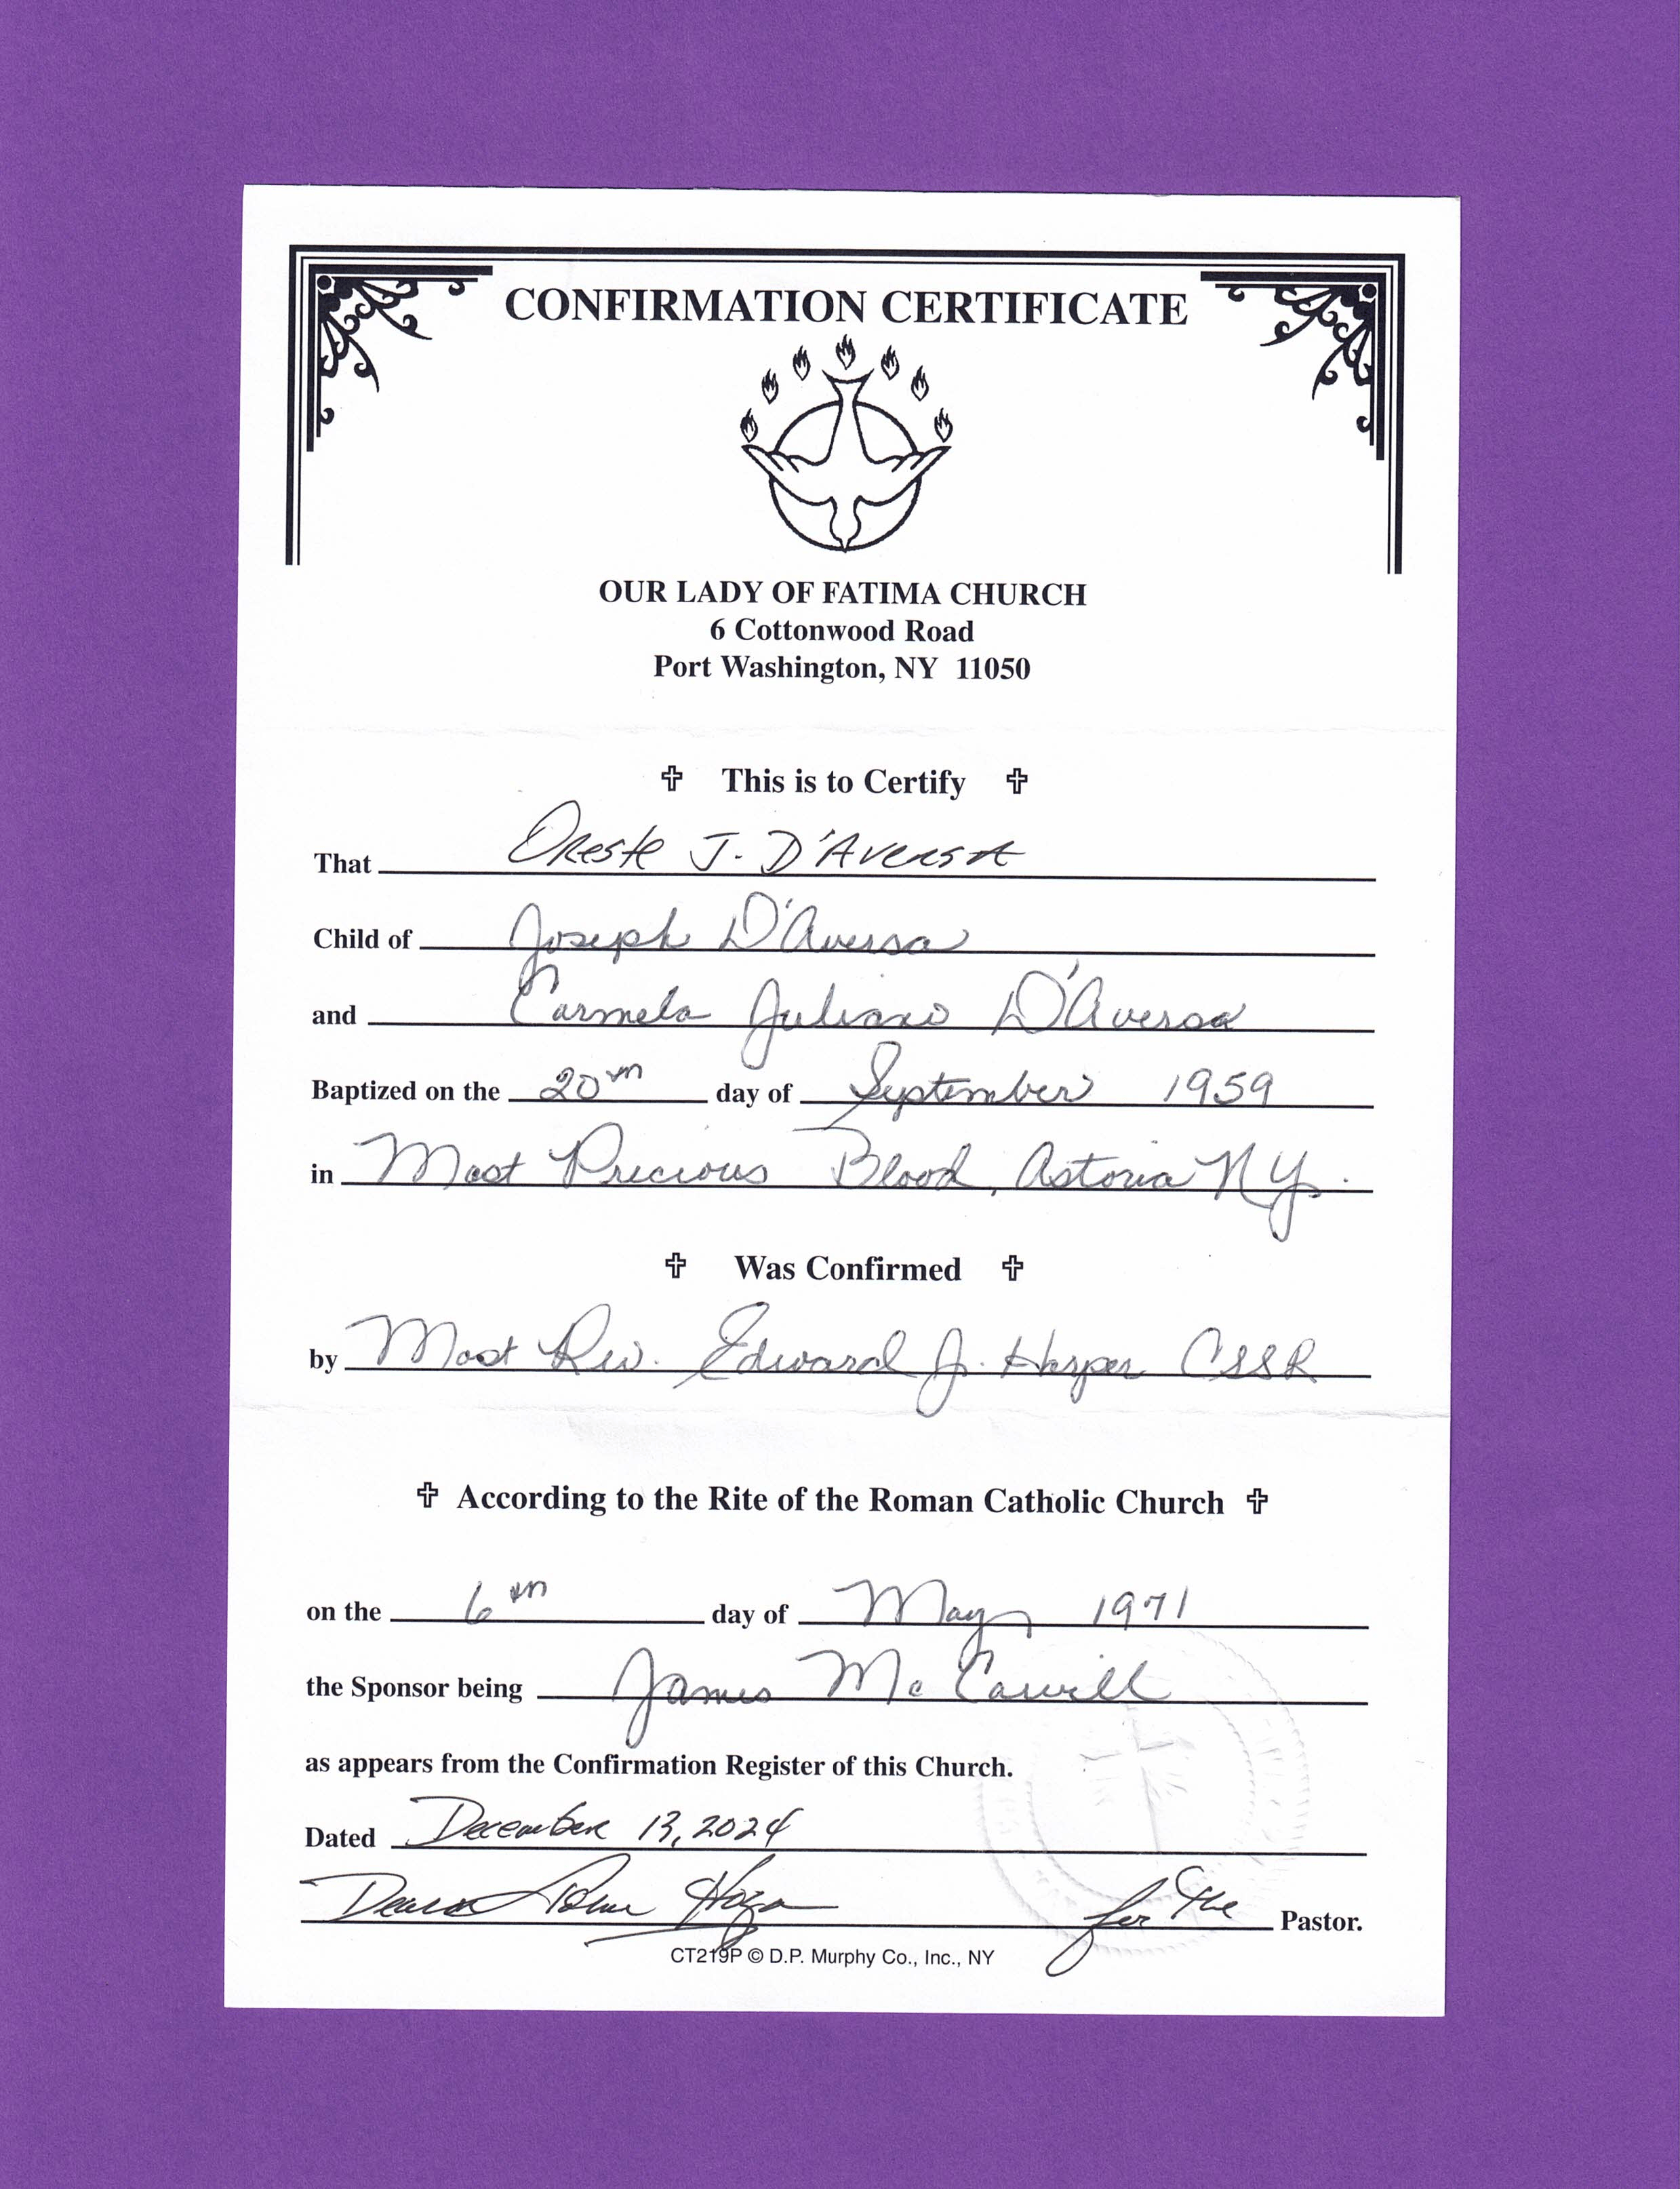 CONFIRMATION CERTIFICATE
OUR LADY OF FATIMA CHURCH
6 Cottonwood Road
Port Washington, NY 11050
This is to Certify
That Oreste J. D'Aversa
Child of Joseph D'Aversa
and Carmela Juliano D'Aversa
Baptized on the 20th day of September 1959
in Most Precious Blood, Astoria NY.
Was Confirmed
by Most Rev. Edward J. Harper CSSR
According to the Rite of the Roman Catholic Church
on the 6th day of May 1971
the Sponsor being James Mc
as appears from the Confirmation Register of this Church.
Dated December 13, 2024
Deacon for the Pastor.
CT219P © D.P. Murphy Co., Inc., NY